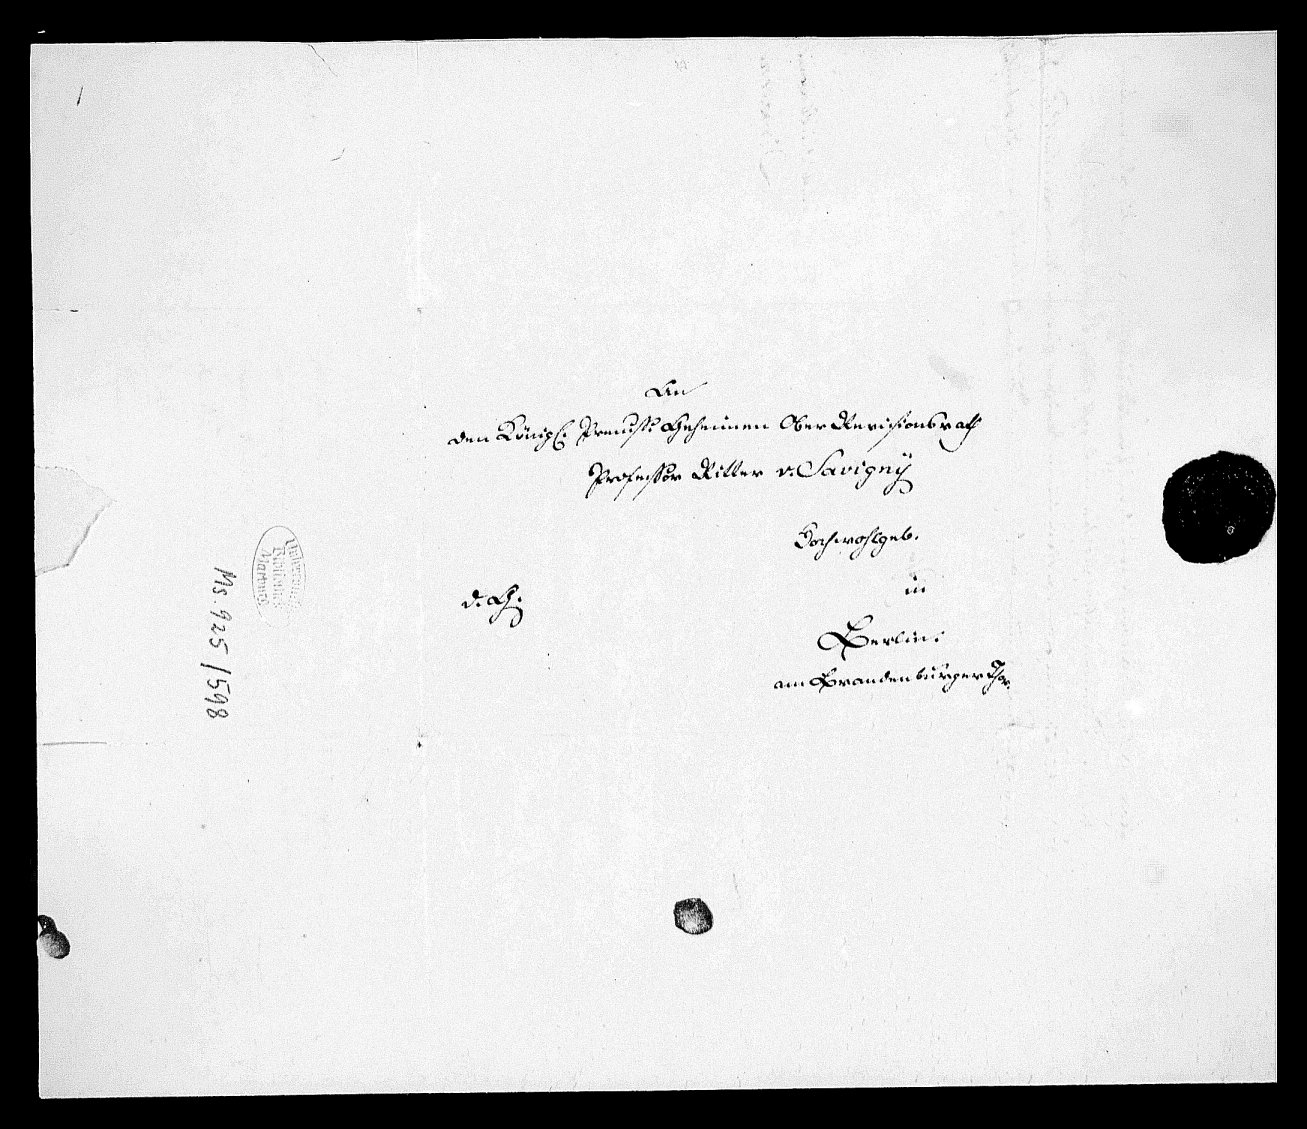 An
den Königl. Preuß. Geheimen Ober Revisionsrath
Professor Ritter v. Savigny
Hochwohlgeb.
in
d. G.
Berlin.
am Brandenburger Thor.
Universitäts
Bibliothek
Marburg
Ms. 925/598